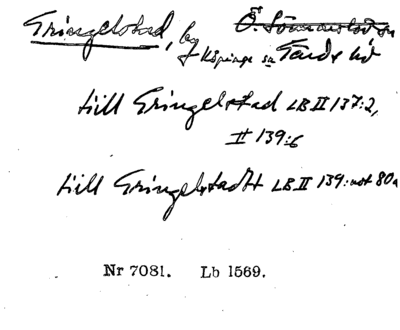 Gringelstad, by Ö. Sönnarslövs sn
Köpinge sn Gärds hd
till Gringelstad LB II 137:2,
II 139:6
till Gringelstadtt LB II 139: not 80a
Nr 7081. Lb 1569.